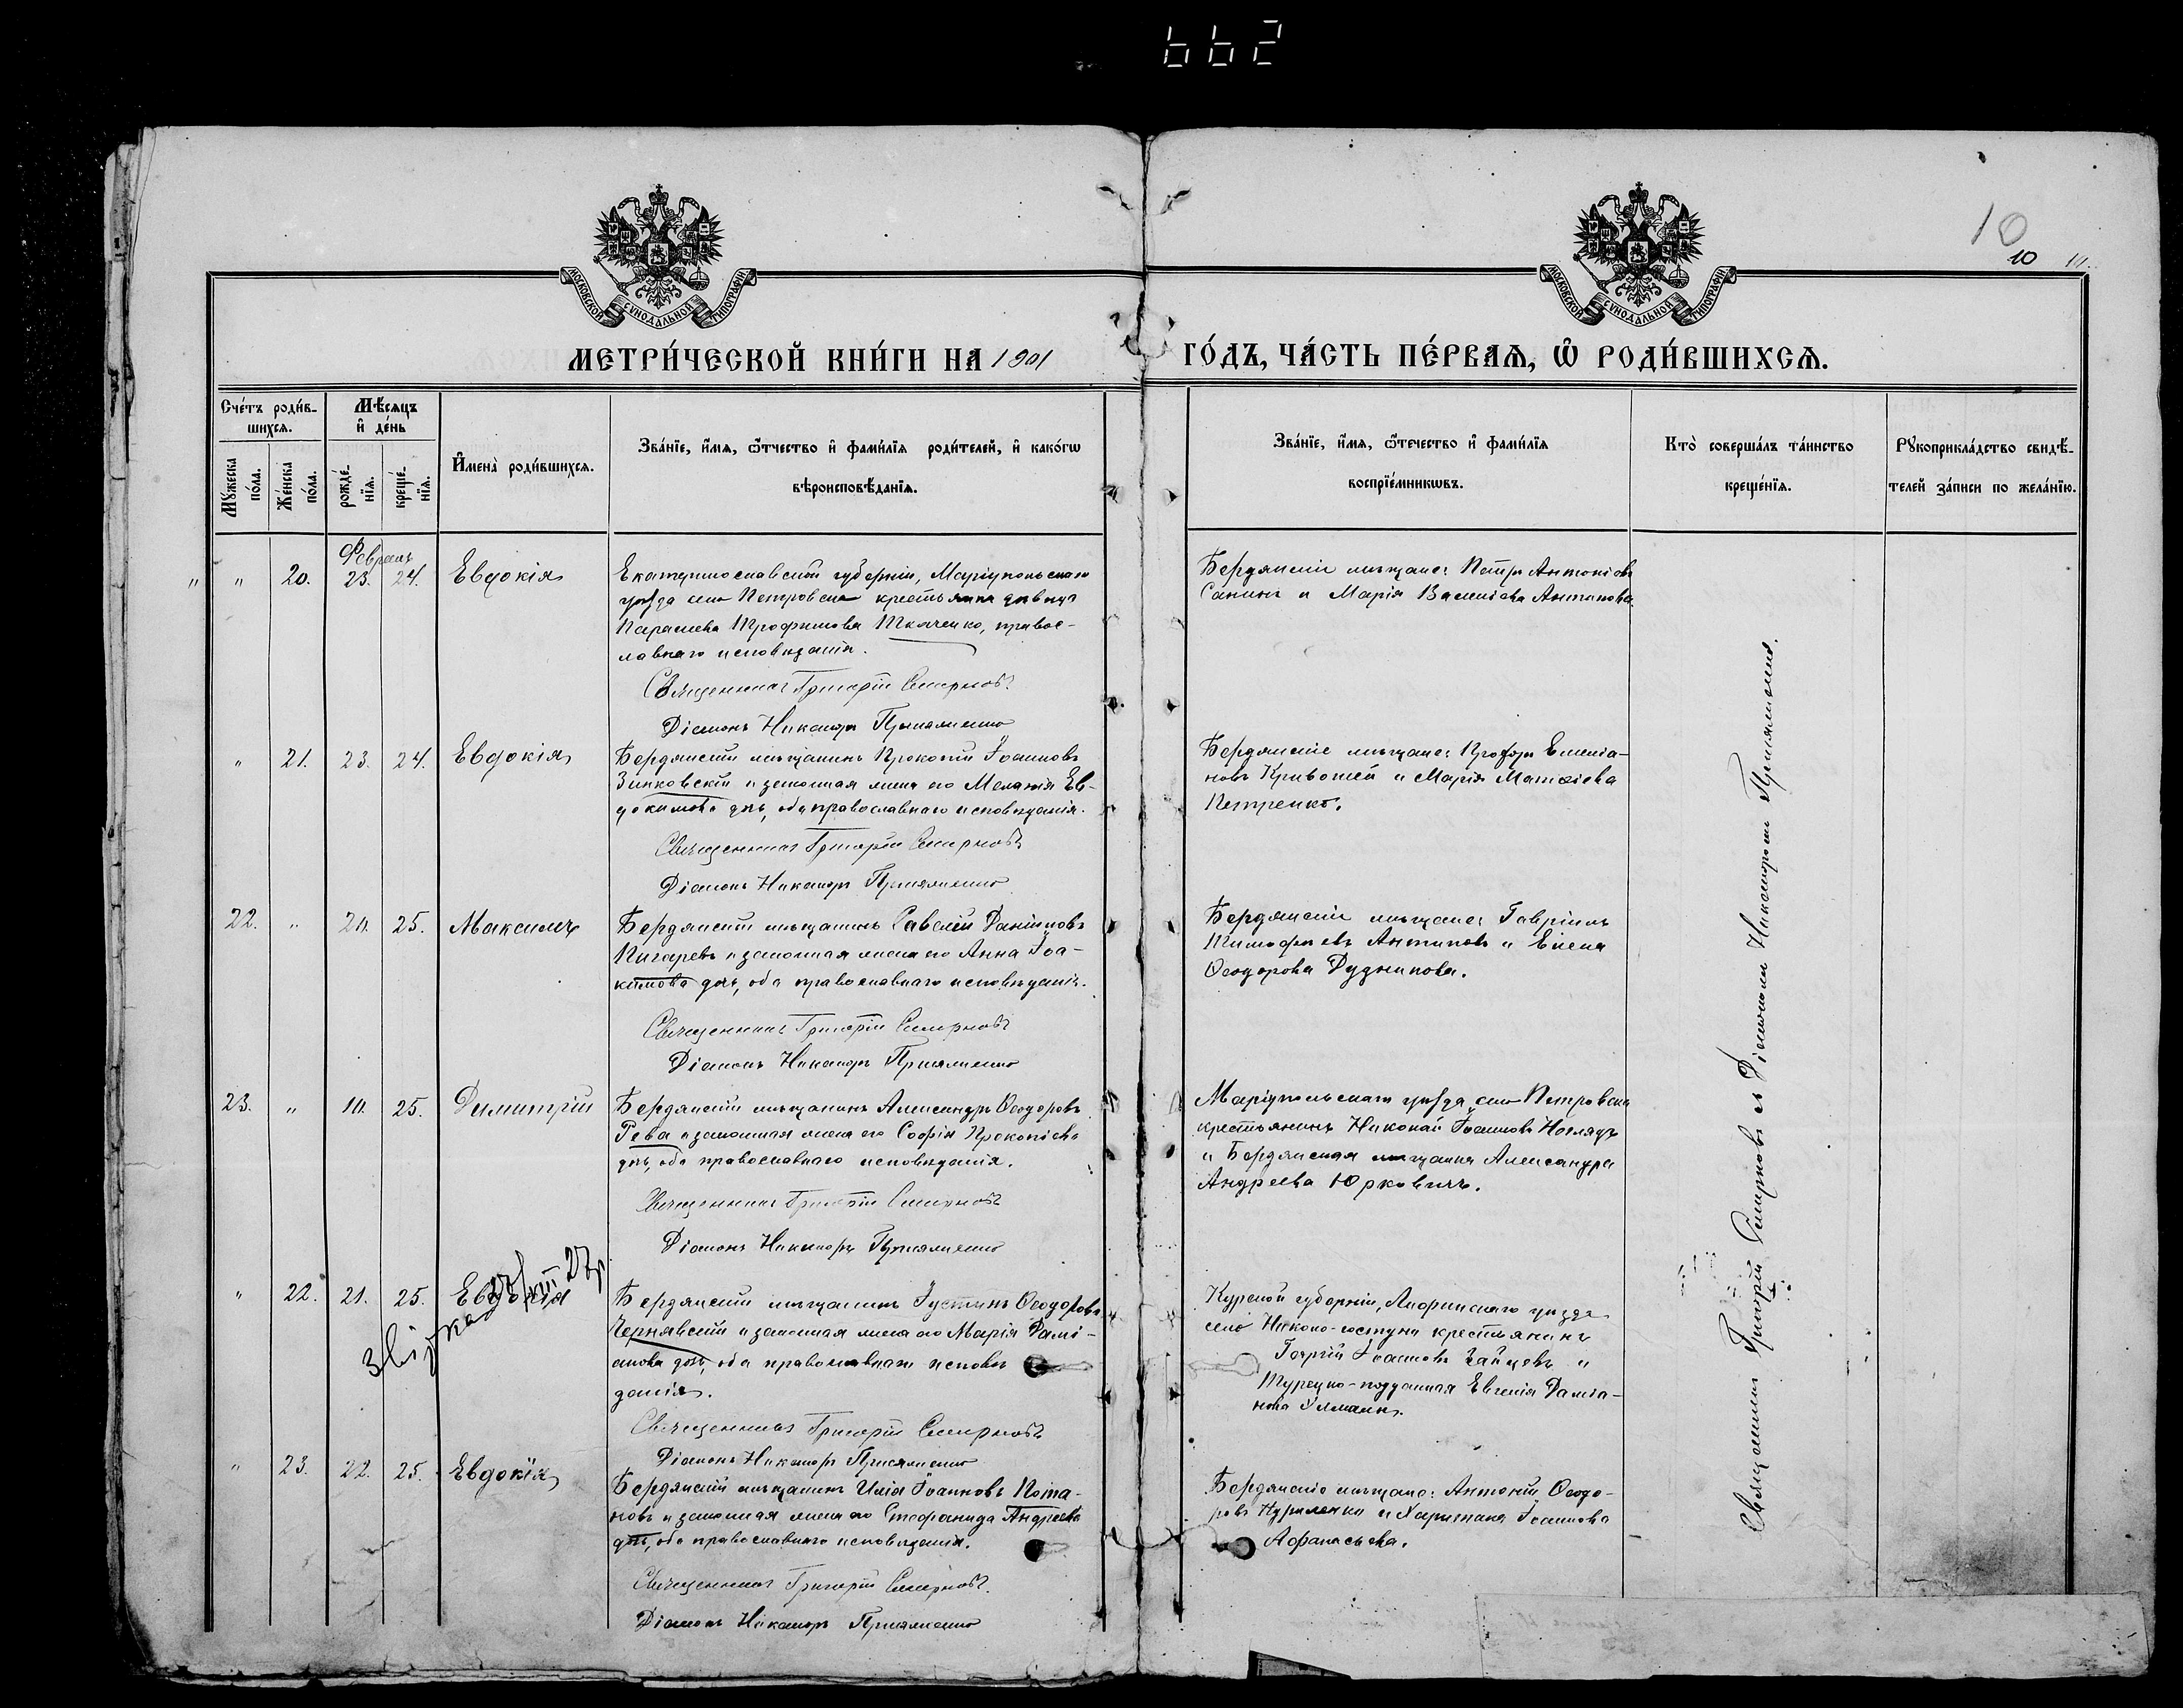 662
10
10
МОСКОВСКОЙ СУНОДАЛЬНОЙ ТИПОГРАФІИ
МОСКОВСКОЙ СУНОДАЛЬНОЙ ТИПОГРАФІИ
МЕТРИ́ЧЕСКОЙ КНИ́ГИ НА 1901 ГО́ДЪ, ЧА́СТЬ ПЕ́РВАѦ, Ѡ РОДИ́ВШИХСѦ.
Сче́тъ роди́в-
шихсѧ.
Мꙋ́жеска по́ла.
Же́нска по́ла.
Мѣ́сѧцъ
и҆ де́нь
рожде́-нїѧ.
креще́-нїѧ.
И҆мена̀ роди́вшихсѧ.
Зва́нїе, и҆́мѧ, ѻ҆́тчество и҆ фами́лїѧ роди́телей, и҆ како́гѡ
вѣроисповѣ́данїѧ.
Зва́нїе, и҆́мѧ, ѻ҆те́чество и҆ фами́лїѧ
воспрїе́мникѡвъ.
Кто̀ соверша́лъ та́инство
креще́нїѧ.
Рꙋкоприкла́дство свидѣ́-
телей за́писи по жела́нїю.
Февраль
" 20. 23. 24. Евдокія
Екатеринославской губерніи, Маріупольскаго
уѣзда села Петровска крестьянка дѣвица
Параскева Трофимова Ткаченко, правос-
лавнаго исповѣданія.
Священникъ Григорій Смирновъ
Діаконъ Никаноръ
Бердянскіе мѣщане: Петръ Антоніовъ
Санинъ и Марія Василіева Антипова
" 21. 23. 24. Евдокія
Бердянскій мѣщанинъ Прокопій Іоанновъ
Зинковскій и законная жена его Меланія Ев-
докимова дчь, оба православнаго исповѣданія.
Священникъ Григорій Смирновъ
Діаконъ Никаноръ
Бердянскіе мѣщане: Прохоръ Емеліа-
новъ Кривошей и Марія Матѳіева
Петренко.
22. " 20. 25. Максимъ
Бердянскій мѣщанинъ Савелій Даніиловъ
Пигаревъ и законная жена его Анна Іоа-
кимова дчь, оба православнаго исповѣданія.
Священникъ Григорій Смирновъ
Діаконъ Никаноръ
Бердянскіе мѣщане: Гавріилъ
Тимофеевъ Антиповъ и Елена
Ѳеодорова Дудникова.
23. " 10. 25. Димитрій
Бердянскій мѣщанинъ Александръ Ѳеодоровъ
Рева и законная жена его Софія Прокопіева
дчь, оба православнаго исповѣданія.
Священникъ Григорій Смирновъ
Діаконъ Никаноръ
Маріупольскаго уѣзда села Петровска
крестьянинъ Николай Іоанновъ
и Бердянская мѣщанка Александра
Андреева Юрковичъ.
" 22. 21. 25. Евдокія
Бердянскій мѣщанинъ Іустинъ Ѳеодоровъ
Чернявскій и законная жена его Марія Дамі-
анова дчь, оба православнаго исповѣ
данія.
Священникъ Григорій Смирновъ
Діаконъ Никаноръ
Курской губерніи, уѣзда
село крестьянинъ
Георгій Іоанновъ Зайцевъ и
Турецко-подданная Евгенія Даміа-
нова
" 23. 22. 25. Евдокія
Бердянскій мѣщанинъ Илія Іоанновъ Пота-
новъ и законная жена его Стефанида Андреева
дчь, оба православнаго исповѣданія.
Священникъ Григорій Смирновъ
Діаконъ Никаноръ
Бердянскіе мѣщане: Антоній Ѳеодо-
ровъ Куриленко и Харитина Іоаннова
Афанасьева.
Священникъ Григорій Смирновъ съ Діакономъ Никаноромъ